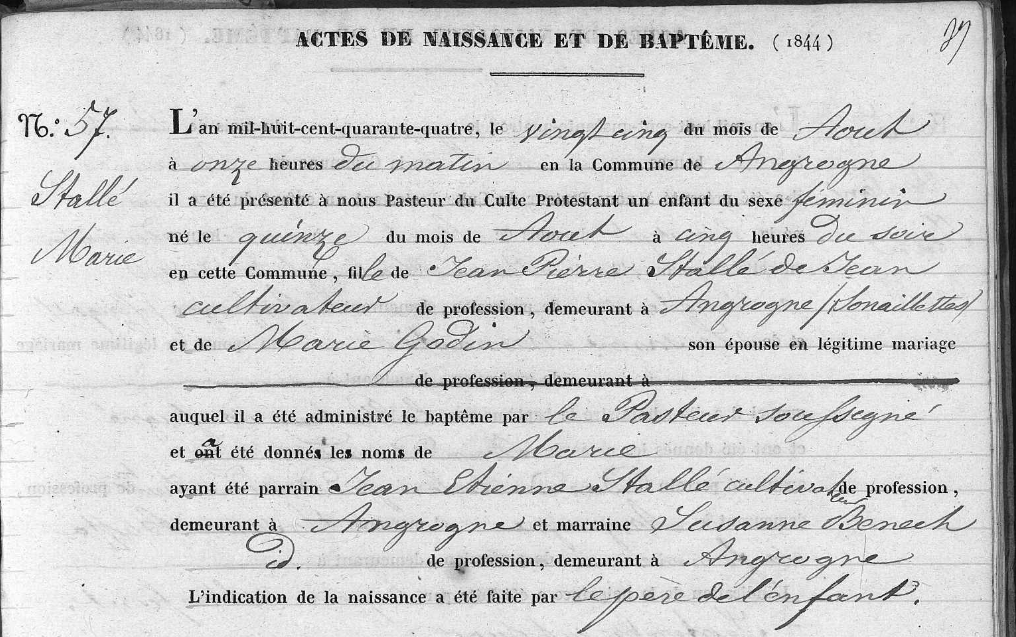 ACTES DE NAISSANCE ET DE BAPTÊME. (1844)
N.º 57.
Stallé
Marie
L'an mil-huit-cent-quarante-quatre, le vingt cinq du mois de Aout
à onze heures du matin en la Commune de Angrogne
il a été présenté à nous Pasteur du Culte Protestant un enfant du sexe féminin
né le quinze du mois de Aout à cinq heures du soir
en cette Commune, fille de Jean Pierre Stallé de Jean
cultivateur de profession, demeurant à Angrogne (Sonaillettes)
et de Marie Godin son épouse en légitime mariage
de profession, demeurant à
auquel il a été administré le baptême par le Pasteur soussigné
et a été donné le nom de Marie
ayant été parrain Jean Etienne Stallé cultivateur de profession,
demeurant à Angrogne et marraine Susanne Benech
id. de profession, demeurant à Angrogne
L'indication de la naissance a été faite par le père de l'enfant.